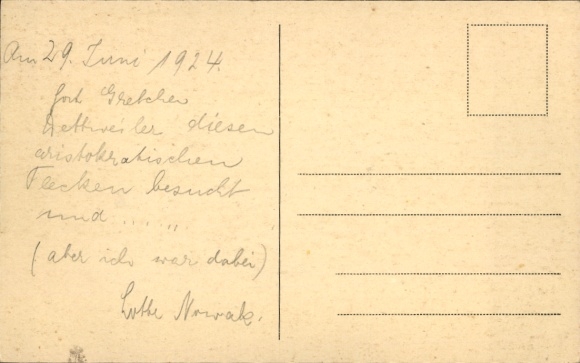 Am 29. Juni 1924.
hat Gretchen
Dettweiler diesen
aristokratischen
Flecken besucht
und ..... „
(aber ich war dabei)
Lotte Nowak.